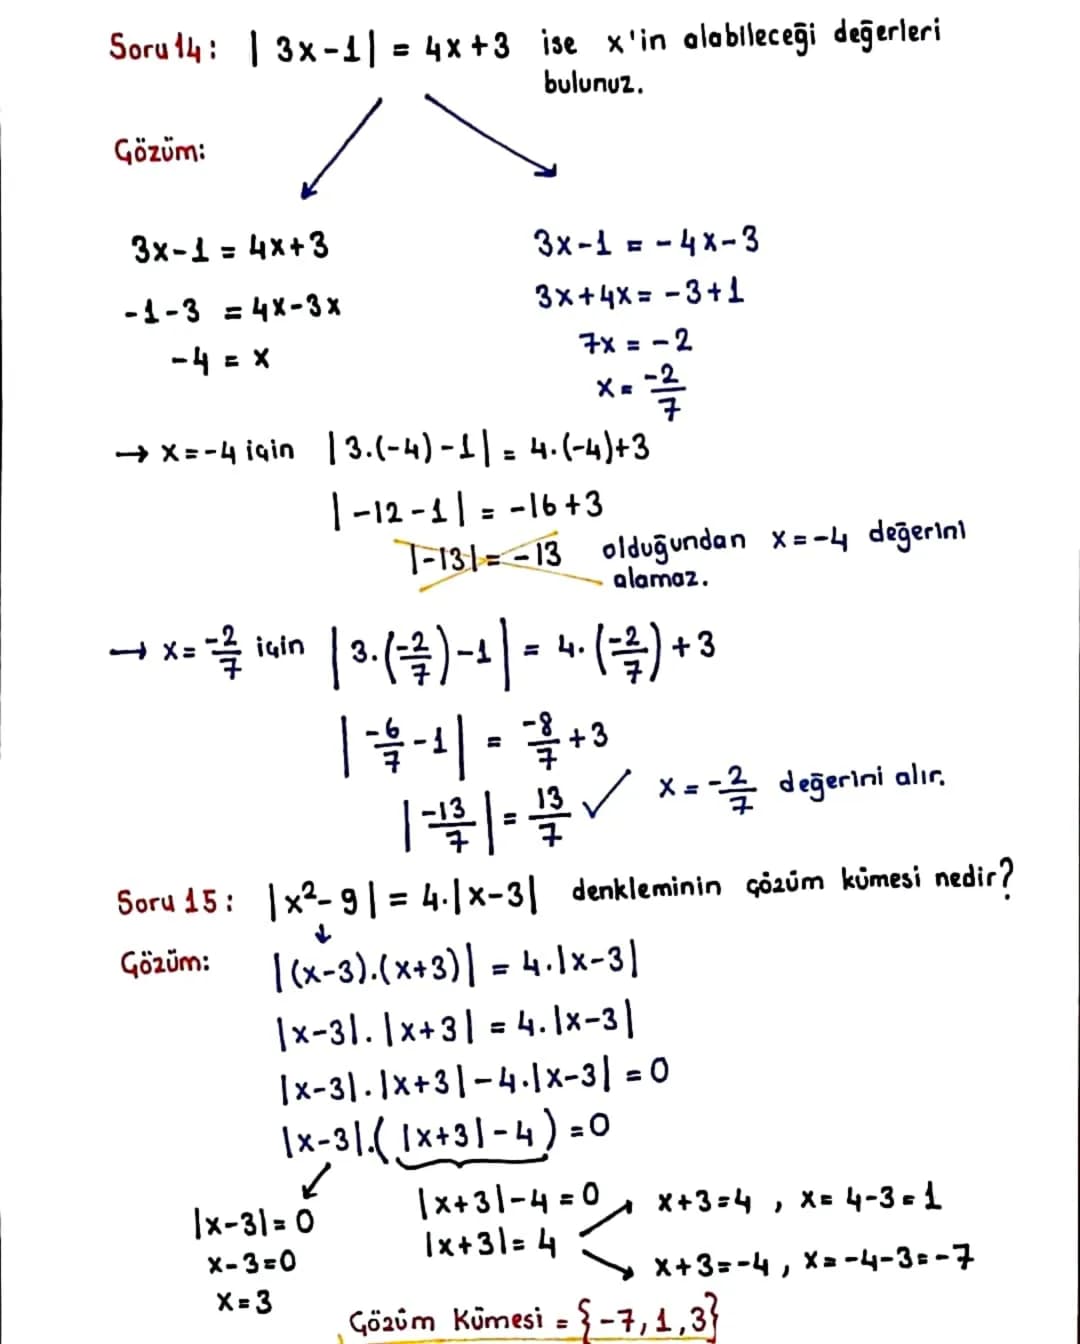 Soru 14: | 3x-1| = 4x+3 ise x'in alabileceği değerleri
bulunuz.
Gözüm:
3x-1 = 4x+3
3x-1 = -4x-3
-1-3 = 4x-3x
3x+4x = -3+1
-4 = x
7x = -2
x = -2/7
→ x=-4 için |3.(-4)-1| = 4.(-4)+3
|-12-1| = -16+3
|-13| = -13 olduğundan x=-4 değerini
alamaz.
→ x= -2/7 için |3.(-2/7)-1| = 4.(-2/7)+3
|-6/7-1| = -8/7+3
|-13/7| = 13/7 ✓ x = -2/7 değerini alır.
Soru 15: |x²-9| = 4.|x-3| denkleminin çözüm kümesi nedir?
Gözüm: |(x-3).(x+3)| = 4.|x-3|
|x-3|.|x+3| = 4.|x-3|
|x-3|.|x+3|-4.|x-3| = 0
|x-3|.(|x+3|-4) = 0
|x-3| = 0
|x+3|-4 = 0
x+3=4 , x= 4-3=1
x-3=0
|x+3|= 4
x+3=-4 , x=-4-3=-7
x=3
Gözüm Kümesi = {-7,1,3}